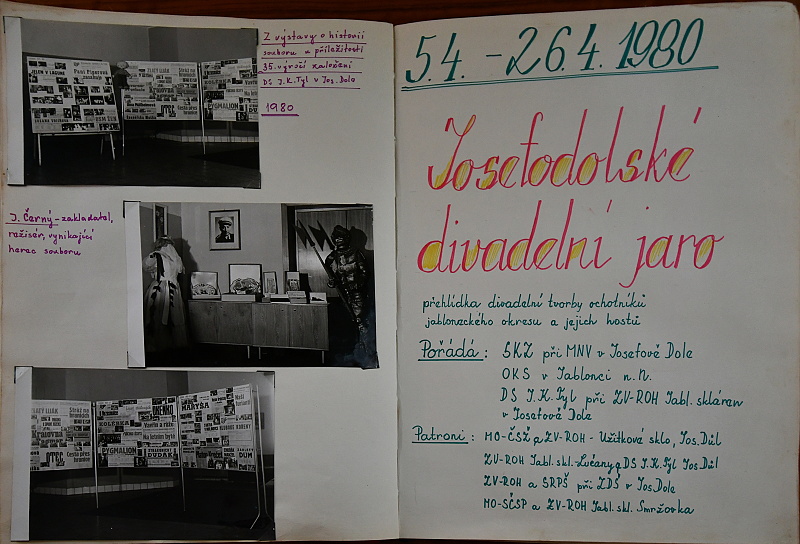 Z výstavy o historii
souboru u příležitosti
35. výročí založení
DS J. K. Tyl v Jos. Dole
1980
J. Černý - zakladatel,
režisér, vynikající
herec souboru
JELEN V LAGUNĚ
PYGMALION
PYGMALION
MARYŠA
DUDÁK
DŮM
5.4. - 26.4. 1980
Josefodolské
divadelní jaro
přehlídka divadelní tvorby ochotníků
jabloneckého okresu a jejich hostů
Pořádá: SKZ při MNV v Josefově Dole
OKS v Jablonci n. N.
DS J. K. Tyl při ZV-ROH Jabl. skláren
v Josefově Dole
Patroni: MO-ČSŽ a ZV-ROH - Užitkové sklo, Jos. Důl
ZV-ROH Jabl. skl. - Lučany a DS J. K. Tyl Jos. Důl
ZV-ROH a SRPŠ při ZDŠ v Jos. Dole
MO-SČSP a ZV-ROH Jabl. skl. Smržovka